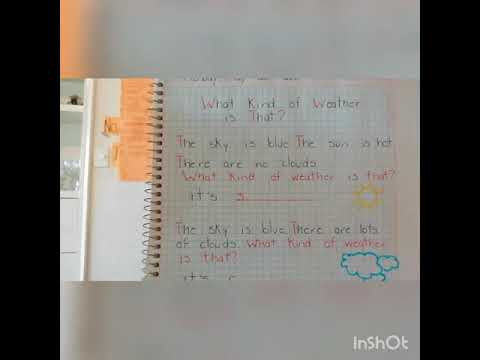 What Kind of Weather
is That?
The sky is blue The sun is hot
There are no clouds.
What Kind of weather is that?
it's s
The sky is blue. There are lots
of clouds. What Kind of weather
is that?
it's c
InShOt